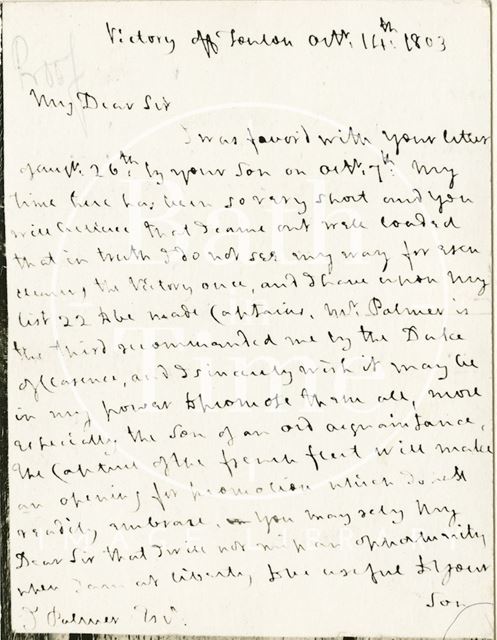 Proof
Victory off Toulon Octr. 14th: 1803
My Dear Sir
I was favor'd with your letter
of augt. 26th. by your Son on octr. 7th. My
time here has been so very short and you
will believe that I came out well loaded
that in truth I do not see my way for even
clearing the Victory once, and I have upon my
list 22 to be made Captains, Mr. Palmer is
the third recommanded me by the Duke
of Clarence, and I sincerely wish it may be
in my power to promote them all, more
especially the Son of an old acquaintance,
the Capture of the french fleet will make
an opening for promotion which I shall
readily embrace. You may rely My
Dear Sir that I will not miss an opportunity
when I am at liberty, to be useful to your
Son
J Palmer Esqr.
Bath in Time
IMAGE LIBRARY